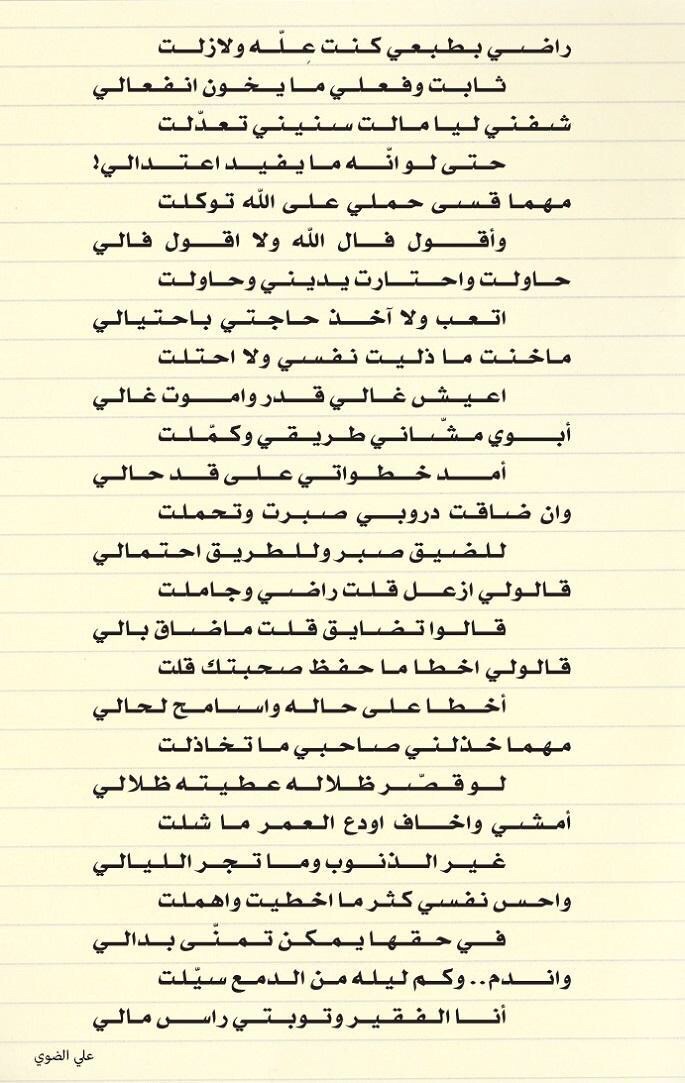 راضي بطبعي كنت عِلّه ولازلت
ثابت وفعلي ما يخون انفعالي
شفني ليا مالت سنيني تعدّلت
حتى لو انّه ما يفيد اعتدالي!
مهما قسى حملي على الله توكلت
وأقول فال الله ولا اقول فالي
حاولت واحتارت يديني وحاولت
اتعب ولا آخذ حاجتي باحتيالي
ماخنت ما ذليت نفسي ولا احتلت
اعيش غالي قدر واموت غالي
أبوي مشّاني طريقي وكمّلت
أمد خطواتي على قد حالي
وان ضاقت دروبي صبرت وتحملت
للضيق صبر وللطريق احتمالي
قالولي ازعل قلت راضي وجاملت
قالوا تضايق قلت ماضاق بالي
قالولي اخطا ما حفظ صحبتك قلت
أخطا على حاله واسامح لحالي
مهما خذلني صاحبي ما تخاذلت
لو قصّر ظلاله عطيته ظلالي
أمشي واخاف اودع العمر ما شلت
غير الذنوب وما تجر الليالي
واحس نفسي كثر ما اخطيت واهملت
في حقها يمكن تمنّى بدالي
واندم.. وكم ليله من الدمع سيّلت
أنا الفقير وتوبتي راس مالي
علي الضوي